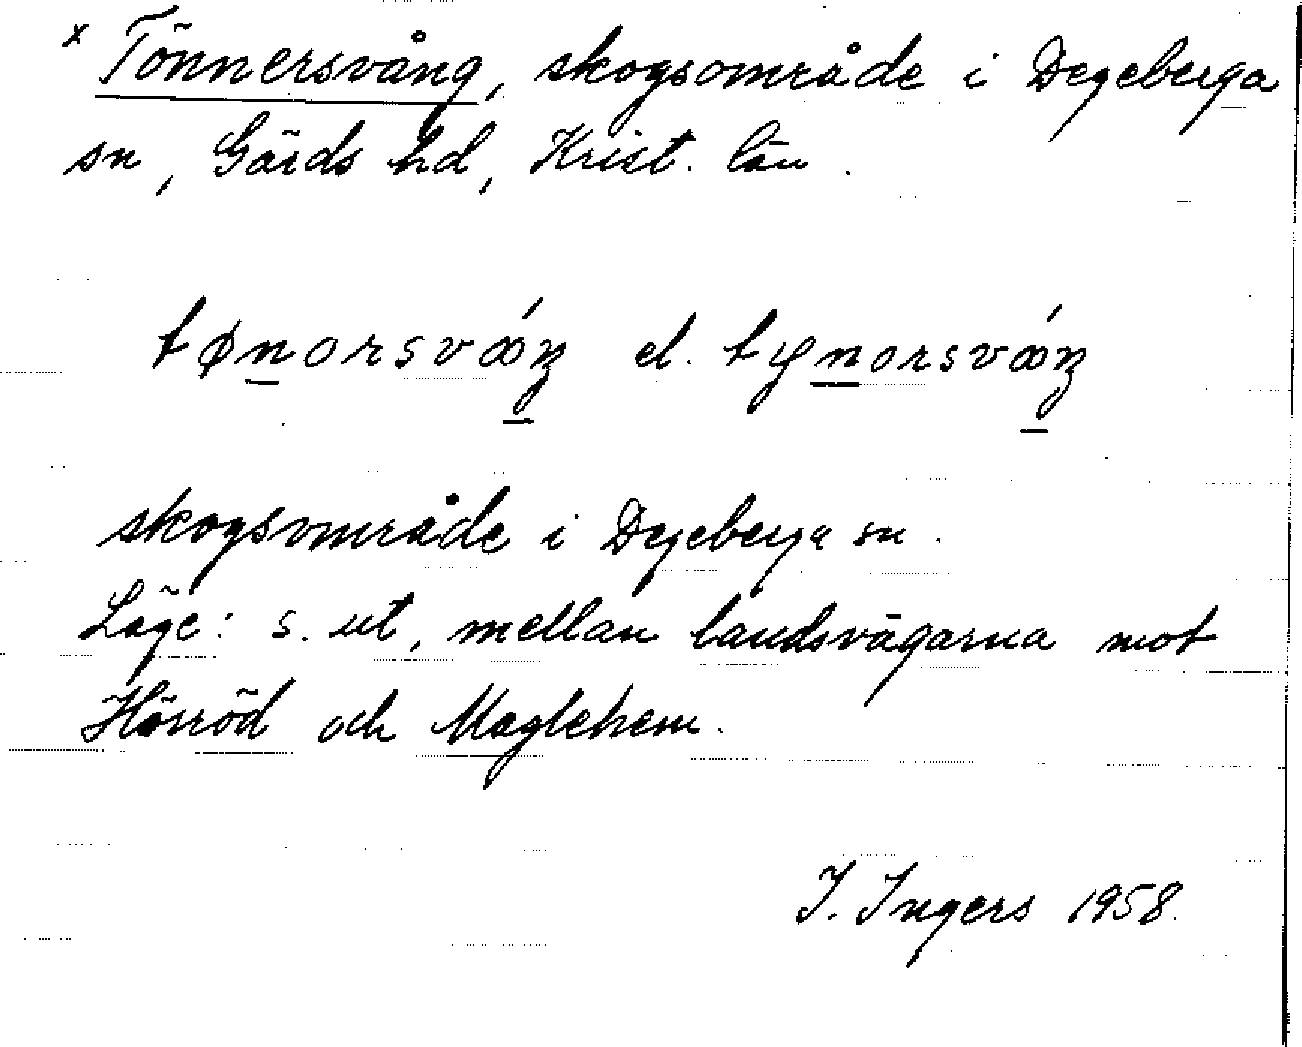 x Tönnersvång, skogsområde i Degeberga
sn, Gärds hd, Krist. län.
tønorsvǻŋ el. tynorsvǻŋ
skogsområde i Degeberga sn.
Läge: s. ut, mellan landsvägarna mot
Hörröd och Maglehem.
I. Ingers 1958.